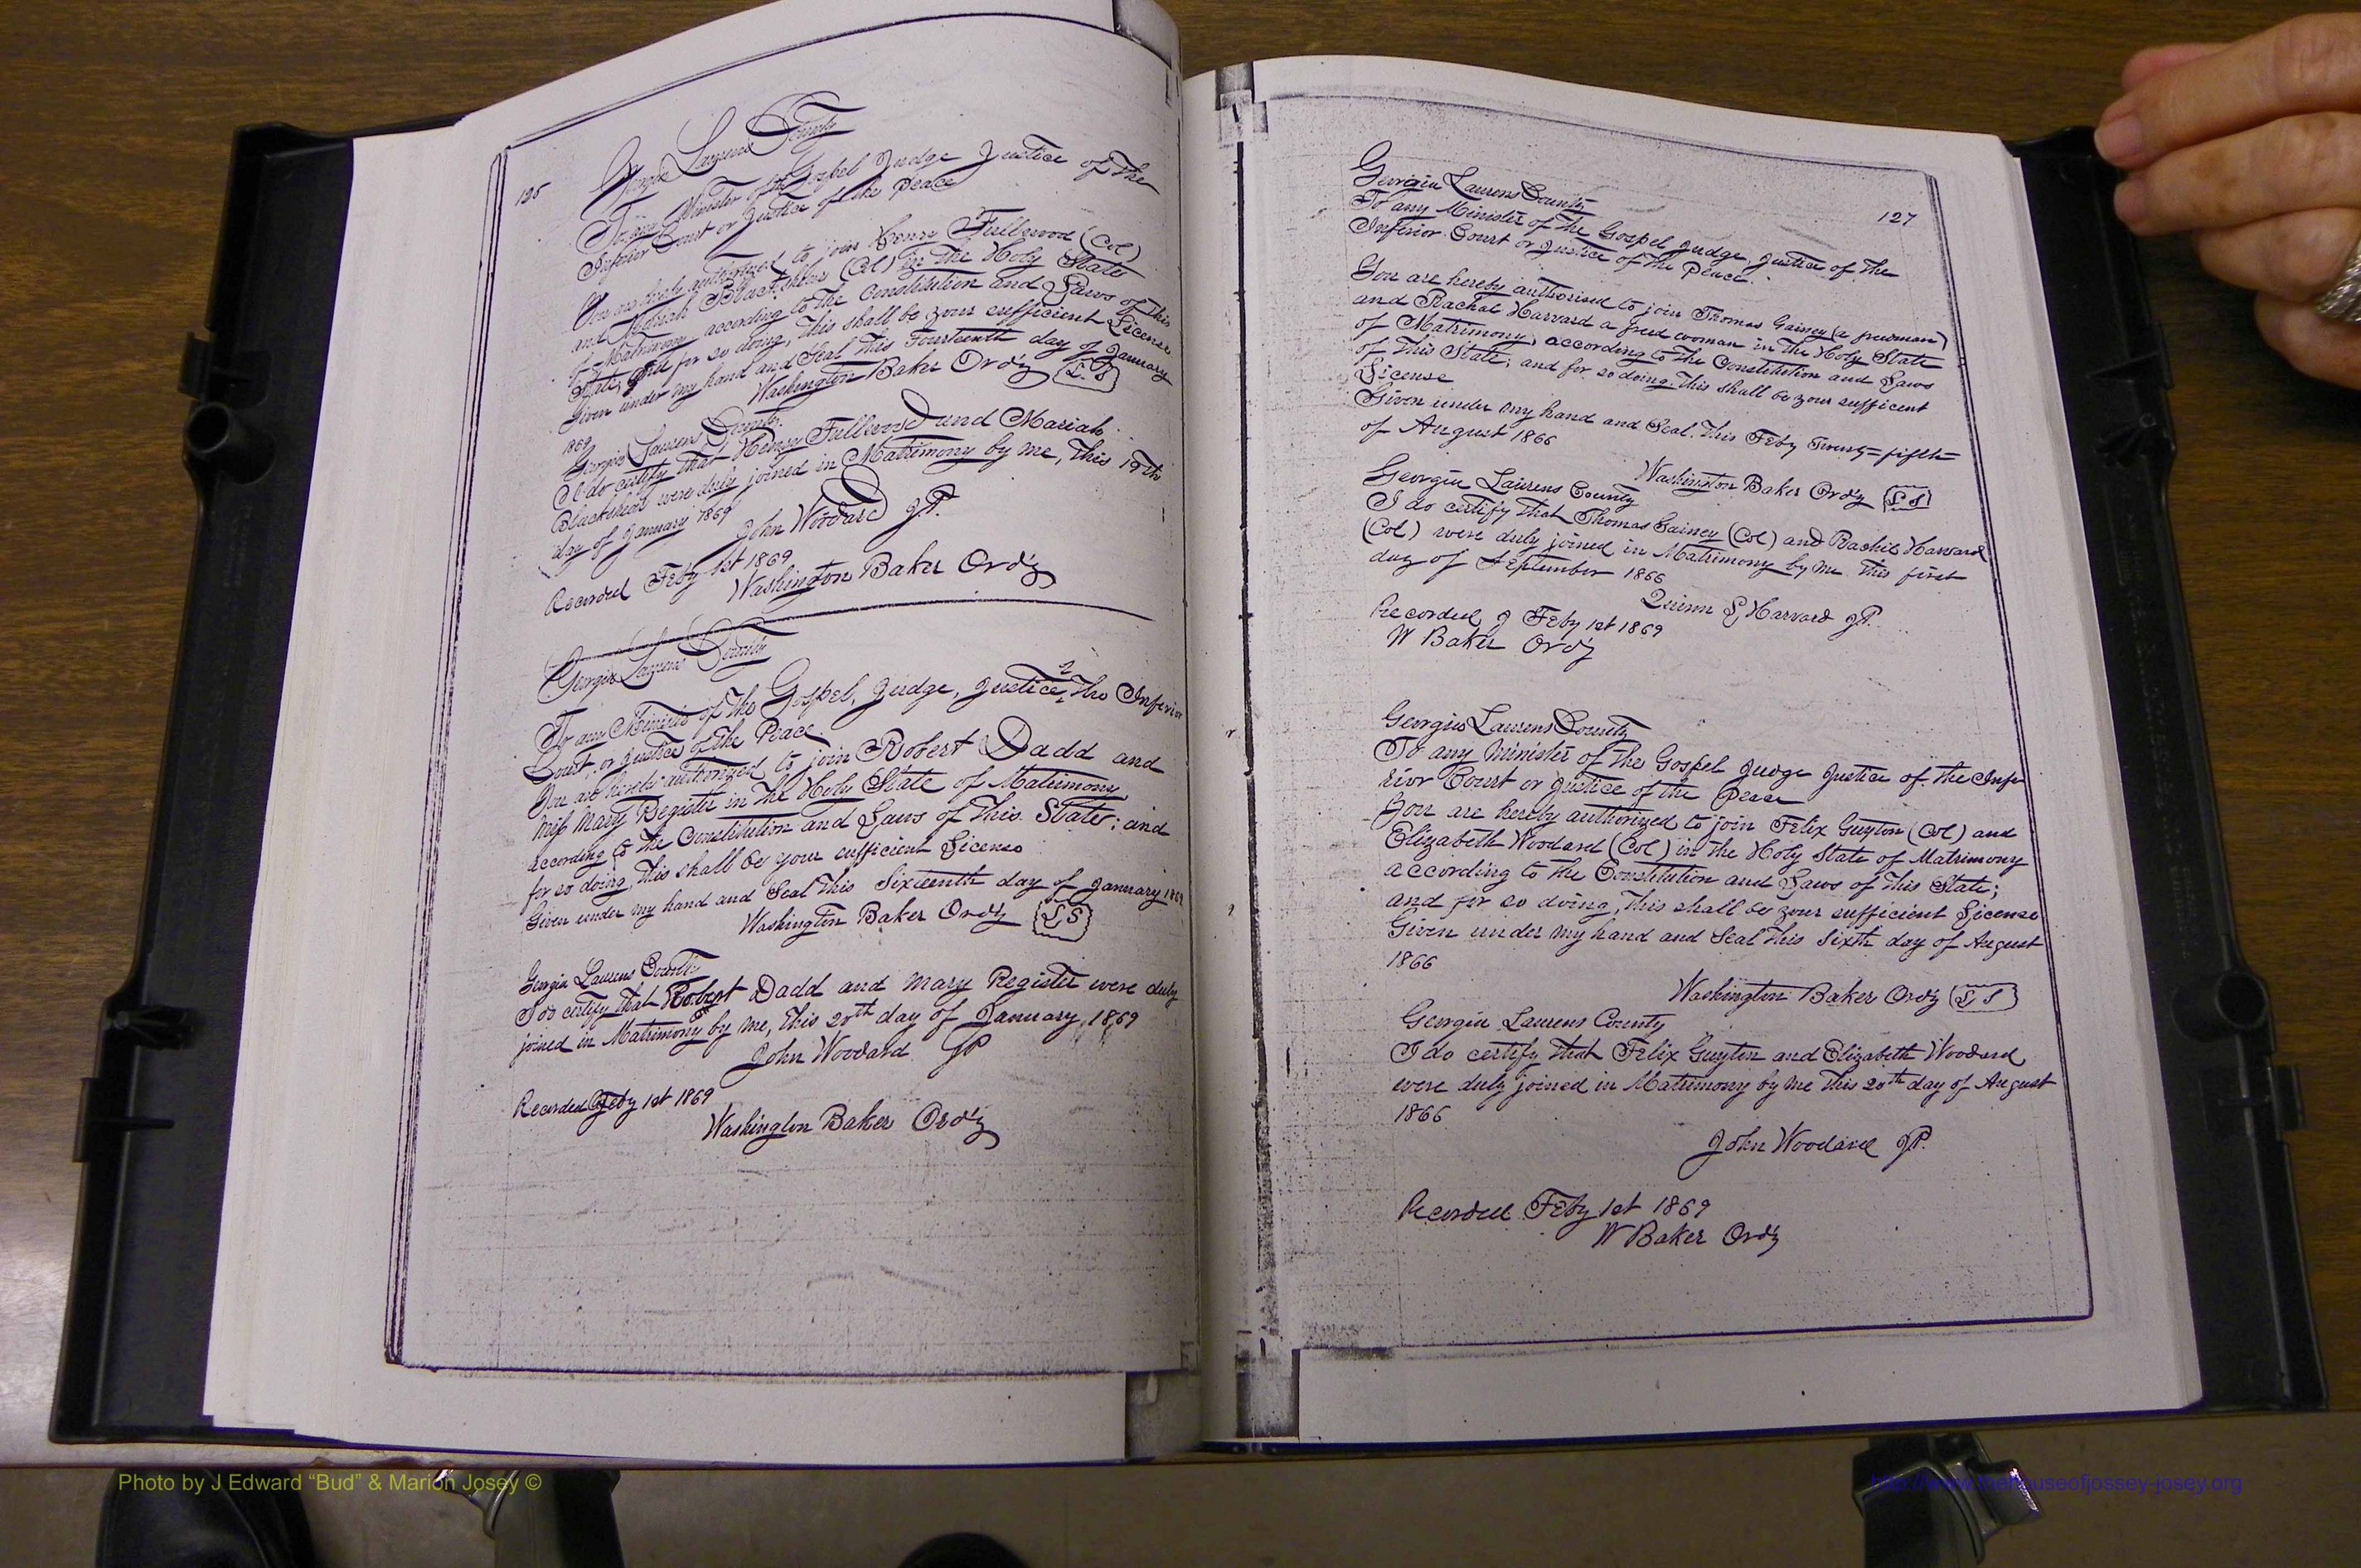 126
Georgia Laurens County
To any Minister of the Gospel Judge Justice of the
Inferior Court or Justice of the Peace
You are hereby authorized to join Henry Fullwood (Col)
and Mariah Blackshear (Col) in the Holy State
of Matrimony according to the Constitution and Laws of this
State; and for so doing, this shall be your sufficient License
Given under my hand and Seal this Fourteenth day of January
1869
Washington Baker Ordy L.S
Georgia Laurens County
I do certify that Henry Fullwood and Mariah
Blackshear were duly joined in Matrimony by me, this 19th
day of January 1869
John Woodard J.P.
Recorded Feby 1st 1869
Washington Baker Ordy
Georgia Laurens County
To any Minister of the Gospel, Judge, Justice of the Inferior
Court, or Justice of the Peace
You are hereby authorized to join Robert Dadd and
Miss Mary Register in the Holy State of Matrimony
according to the Constitution and Laws of this State; and
for so doing, this shall be your sufficient License
Given under my hand and Seal this Sixteenth day of January 1869
Washington Baker Ordy L S
Georgia Laurens County
I do certify that Robert Dadd and Mary Register were duly
joined in Matrimony by me, this 20th day of January, 1869
John Woodard JP
Recorded Feby 1st 1869
Washington Baker Ordy
127
Georgia Laurens County
To any Minister of the Gospel Judge, Justice of the
Inferior Court or Justice of the Peace.
You are hereby authorised to join Thomas Gainey (a freedman)
and Rachal Harvard a freed woman in the Holy State
of Matrimony, according to the Constitution and Laws
of this State; and for so doing. this shall be your sufficient
License
Given under my hand and Seal. this Feby Twenty=fifth
of August 1866
Washington Baker Ordy L S
Georgia Laurens County
I do certify that Thomas Gainey (Col) and Rachel Harvard
(Col) were duly joined in Matrimony by me this first
day of September 1866
Quinn L Harvard JP.
Recorded Feby 1st 1869
W Baker Ordy
Georgia Laurens County
To any minister of the Gospel Judge Justice of the Infe
rior Court or Justice of the Peace
You are hereby authorized to join Felix Guyton (Col) and
Elizabeth Woodard (Col) in the Holy State of Matrimony
according to the Constitution and Laws of this State;
and for so doing, this shall be your sufficient License
Given under my hand and Seal this Sixth day of August
1866
Washington Baker Ordy L S
Georgia Laurens County
I do certify that Felix Guyton and Elizabeth Woodard
were duly joined in Matrimony by me this 20th day of August
1866
John Woodard JP.
Recorded Feby 1st 1869
W Baker Ordy
Photo by J Edward “Bud” & Marion Josey ©
http://www.thehouseofjossey-josey.org